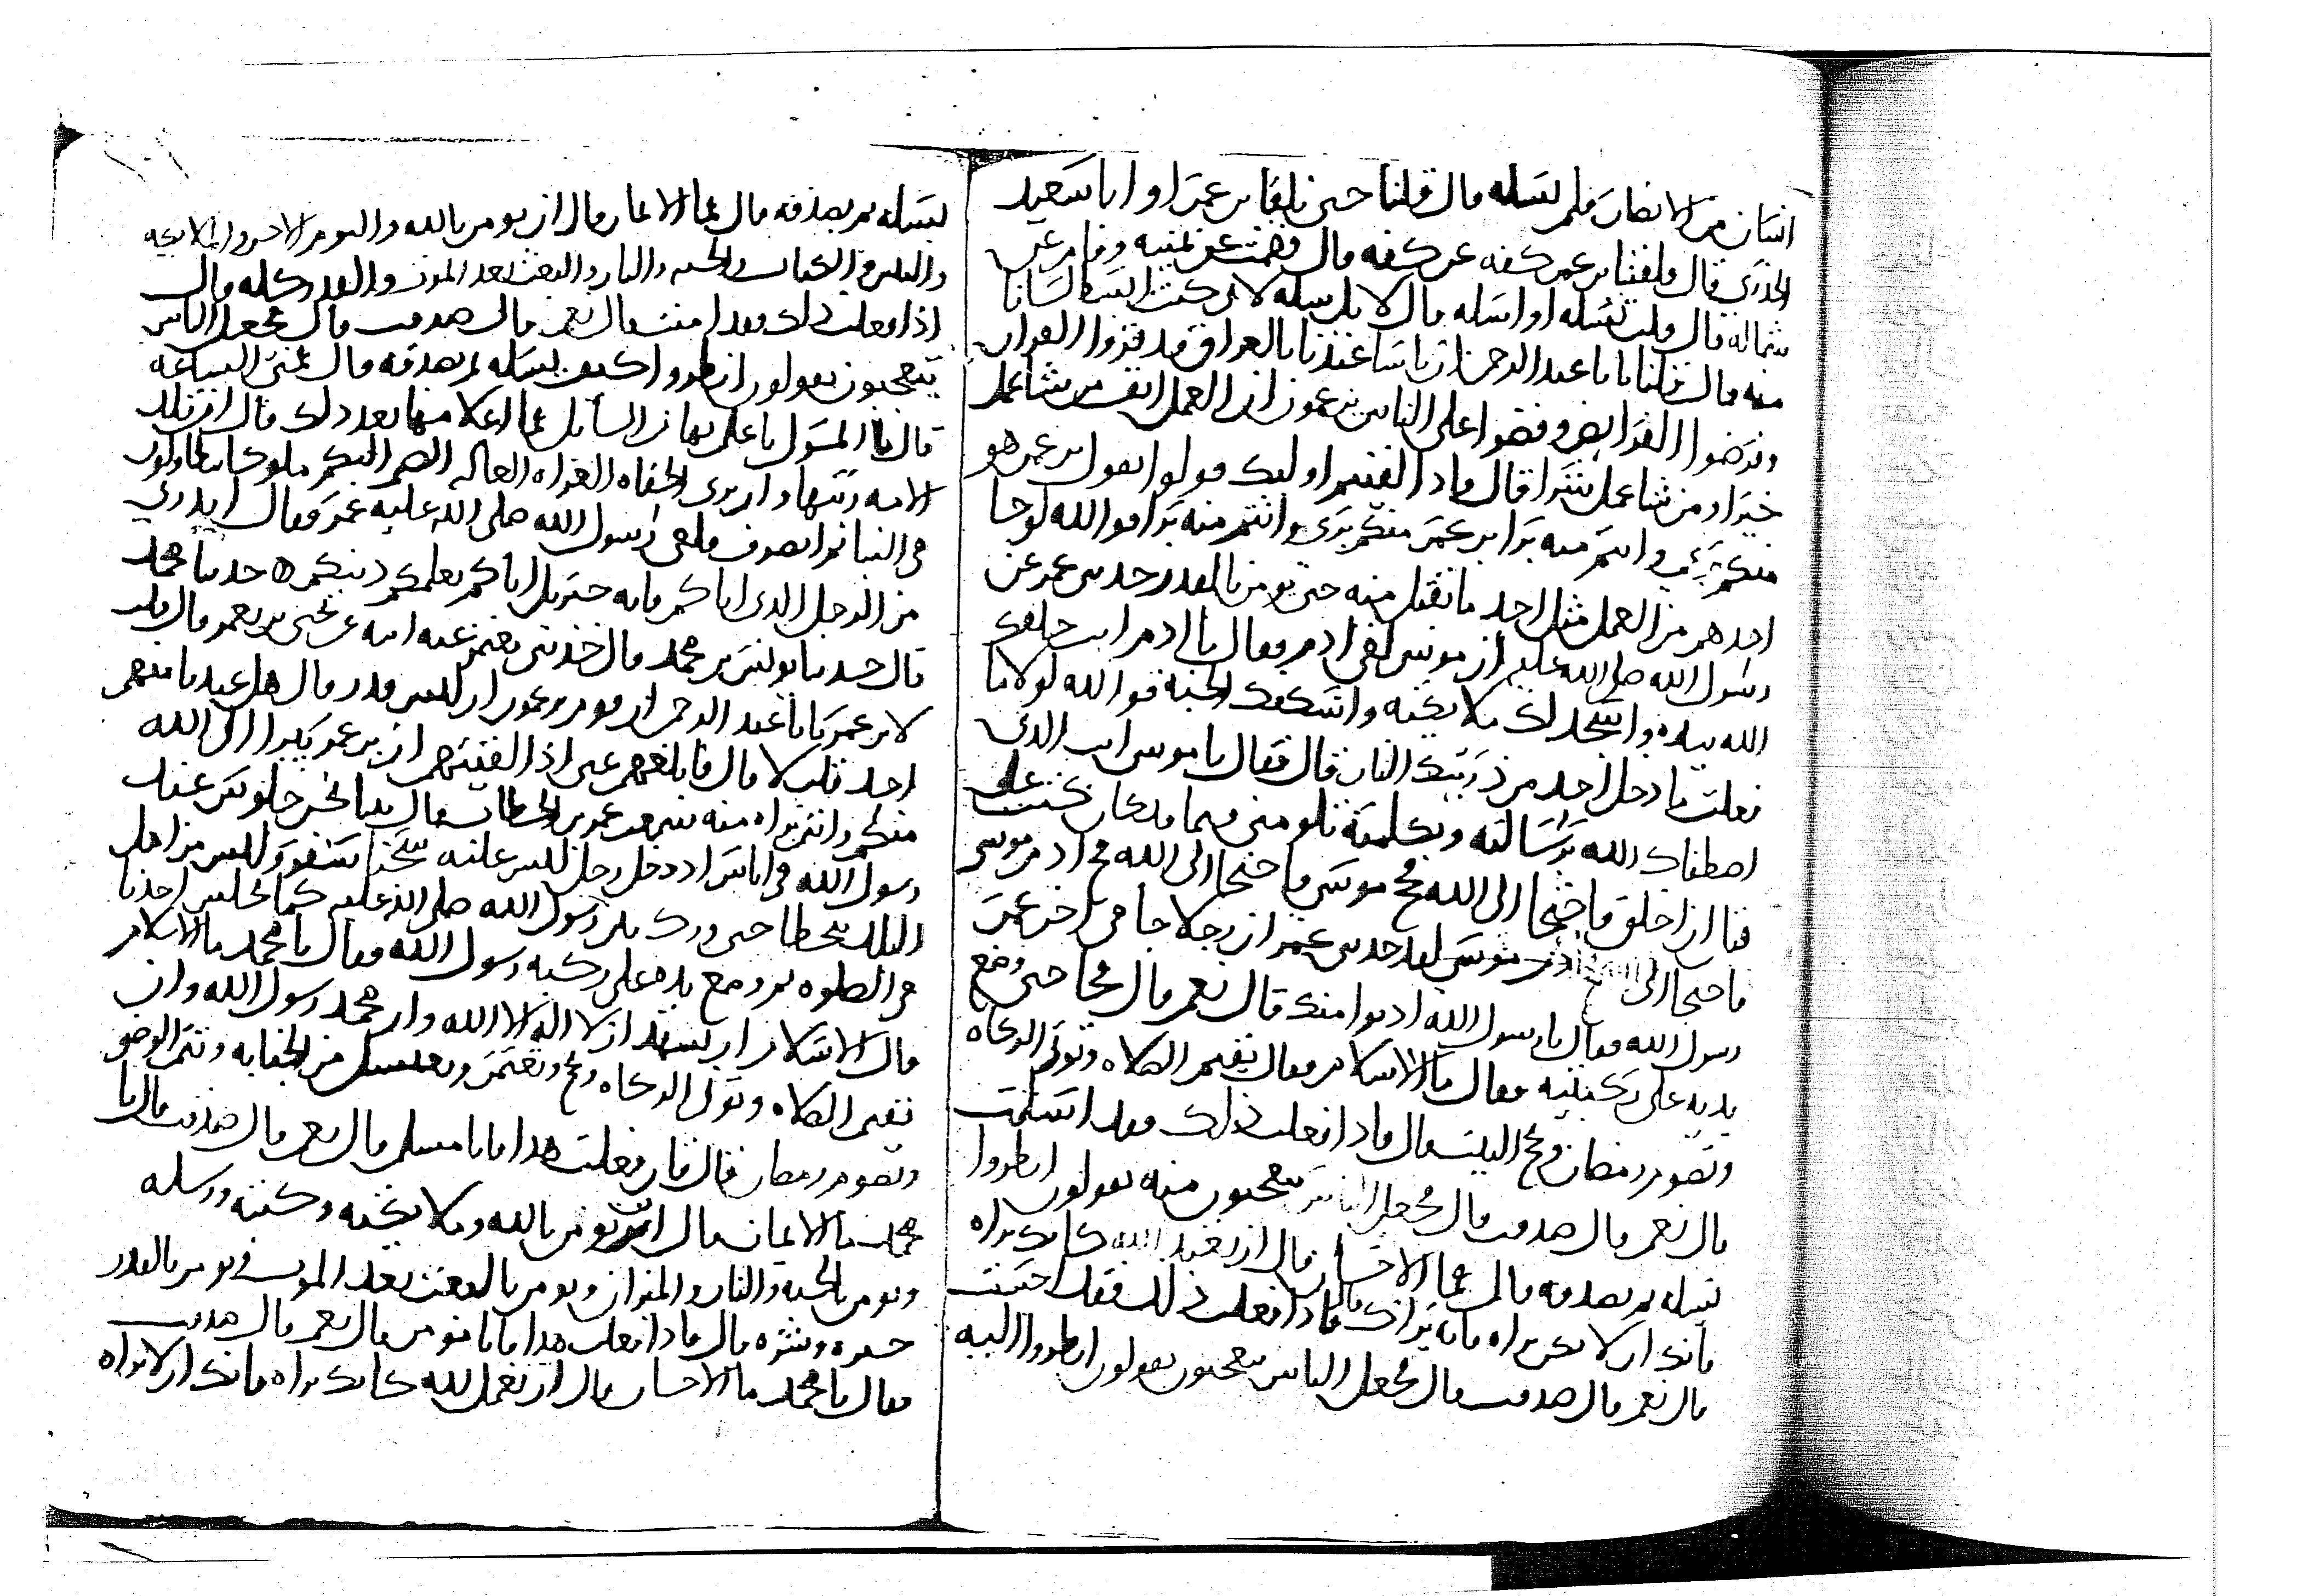 انسان من الانصار فلم نسله قال قلنا حتى نلقا بن عمر او ابا سعيد
الخدري قال فلقينا بن عمر كفه عن كفه قال فقمت عن يمينه وقام عن
شماله قال قلت تسله او اسله قال لا بل سله لاني كنت ابسط لسانا
منه قال قلنا يا با عبد الرحمن ان ناسا عندنا بالعراق قد قروا القران
وفرضوا الفرايض وقصوا على الناس يزعمون ان العمل انف من شا عمل
خيرا ومن شا عمل شرا قال فاذا لقيتم اوليك فقولوا يقول بن عمر هو
منكم بري وانتم منه برا بن عمر منكم بري وانتم منه برا فوالله لو جا
احدهم من العمل مثل احد ما تقبل منه حتى يومن بالقدر حدثني عمر عن
رسول الله صلى الله عليه ان موسى لقي ادم فقال يا ادم انت خلقك
الله بيده واسجد لك ملايكته واسكنك الجنة فوالله لولا ما
فعلت ما دخل احد من ذريتك النار قال فقال يا موسى انت الذي
اصطفاك الله برسالته وبكلمته تلومني فيما قد كان كتب علي
قبل ان اخلق فاحتجا الى الله فحج موسى فاحتجا الى الله فحج ادم موسى
فاحتجا الى ادم موسى لقد حدثني عمر ان رجلا جا في اخر عمر
رسول الله فقال يا رسول الله ادنوا منك قال نعم قال فجا حتى وضع
يديه على ركبتيه فقال ما الاسلام فقال تقيم الصلاه وتوتي الزكاه
وتصوم رمضان وتحج البيت قال فاذا فعلت ذلك فقد اسلمت
قال نعم قال صدقت قال فجعل الناس يتعجبون منه يقولون انظروا
يسله ثم يصدقه قال فما الاحسان قال ان تعبد الله كانك تراه
فانك ان لا تكن تراه فانه يراك قال فاذا فعلت ذلك فقد احسنت
قال نعم قال صدقت قال فجعل الناس يتعجبون يقولون انظروا اليه
يسله ثم يصدقه قال فما الايمان قال ان تومن بالله واليوم الاخر والملايكه
والنبيين والكتاب والجنه والنار والبعث بعد الموت والقدر كله قال
اذا فعلت ذلك فقد امنت قال نعم قال صدقت قال فجعل الناس
يتعجبون يقولون انظروا كيف يسله ثم يصدقه قال فمتى الساعه
قال ما المسول باعلم بها من السايل فما اعلامها بعد ذلك قال ان تلد
الامه ربتها وان يرى الحفاه العراه العاله الصم البكم ملوكا يتطاولون
في البنا ثم انصرف فلقي رسول الله صلى الله عليه عمر فقال اتدري
من الرجل الذي اتاكم فانه جبريل اتاكم يعلمكم دينكم ه حدثنا محمد
قال حدثنا يونس بن محمد قال حدثني معتمر عن ابيه عن يحيى بن يعمر قال قلت
لابن عمر يا با عبد الرحمن ان قوم يزعمون ان ليس قدر قال هل عندنا منهم
احد قلت لا قال فابلغهم عني اذا لقيتهم ان بن عمر يبرا الى الله
منكم وانتم براه منه سمعت عمر بن الخطاب قال بينا نحن جلوس عند
رسول الله في اناس اذ دخل رجل ليس عليه سحنا سفر وليس من اهل
البلد يتخطا حتى ورك بين رسول الله صلى الله عليه كما يجلس احدنا
في الصلوه ثم وضع يده على ركبه رسول الله فقال يا محمد ما الاسلام
قال الاسلام ان تشهد ان لا اله الا الله وان محمد رسول الله وان
تقيم الصلاه وتوتي الزكاه وتحج وتعتمر وتغتسل من الجنابه وتتم الوضو
وتصوم رمضان قال فان فعلت هذا فانا مسلم قال نعم قال صدقت قال يا
محمد ما الايمان قال ان تومن بالله وملايكته وكتبه ورسله
وتومن بالجنه والنار والميزان وتومن بالبعث بعد الموت وتومن بالقدر
خيره وشره قال فاذا فعلت هذا فانا مومن قال نعم قال صدقت
فقال يا محمد ما الاحسان قال ان تعمل لله كانك تراه فانك ان لا تراه